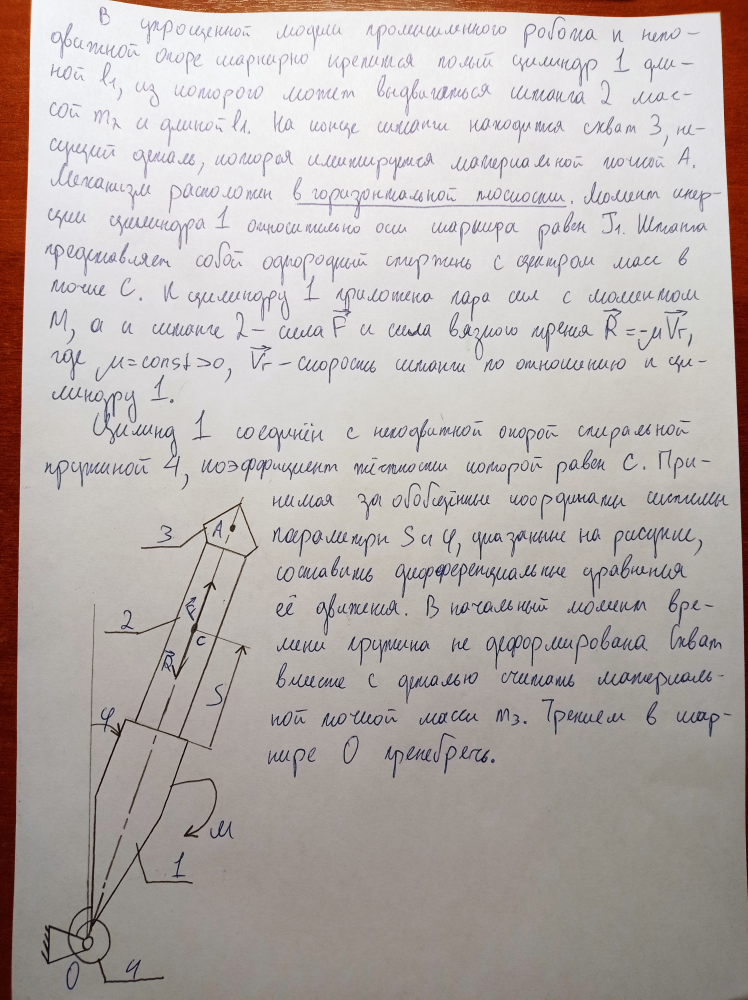 В упрощенной модели промышленного робота к непо-
движной опоре шарнирно крепится полый цилиндр 1 дли-
ной l₁, из которого может выдвигаться штанга 2 мас-
сой m₂ и длиной l₁. На конце штанги находится схват 3, не-
сущий деталь, которая имитируется материальной точкой А.
Механизм расположен в горизонтальной плоскости. Момент инер-
ции цилиндра 1 относительно оси шарнира равен J₁. Штанга
представляет собой однородный стержень с центром масс в
точке С. К цилиндру 1 приложена пара сил с моментом
М, а к штанге 2 - сила F⃗ и сила вязкого трения R⃗ = -μV⃗r,
где μ=const>0, V⃗r - скорость штанги по отношению к ци-
линдру 1.
Цилинд 1 соединён с неподвижной опорой спиральной
пружиной 4, коэффициент жёсткости которой равен С. При-
нимая за обобщённые координаты системы
параметры S и φ, указанные на рисунке,
составить дифференциальные уравнения
её движения. В начальный момент вре-
мени пружина не деформирована Схват
вместе с деталью считать материаль-
ной точкой массы m₃. Трением в шар-
нире О пренебречь.
3
А
2
F⃗
С
R⃗
S
φ
М
1
О
4